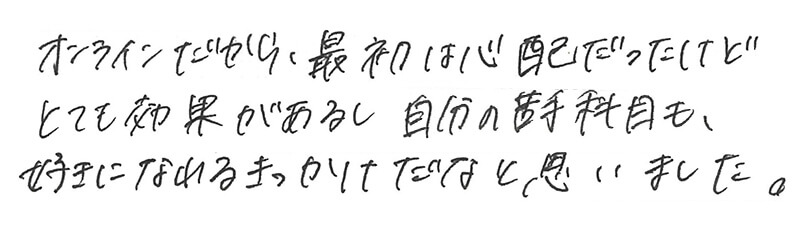 オンラインだから、最初は心配だったけど
とても効果があるし 自分の苦手科目も、
好きになれるきっかけだなと思いました。